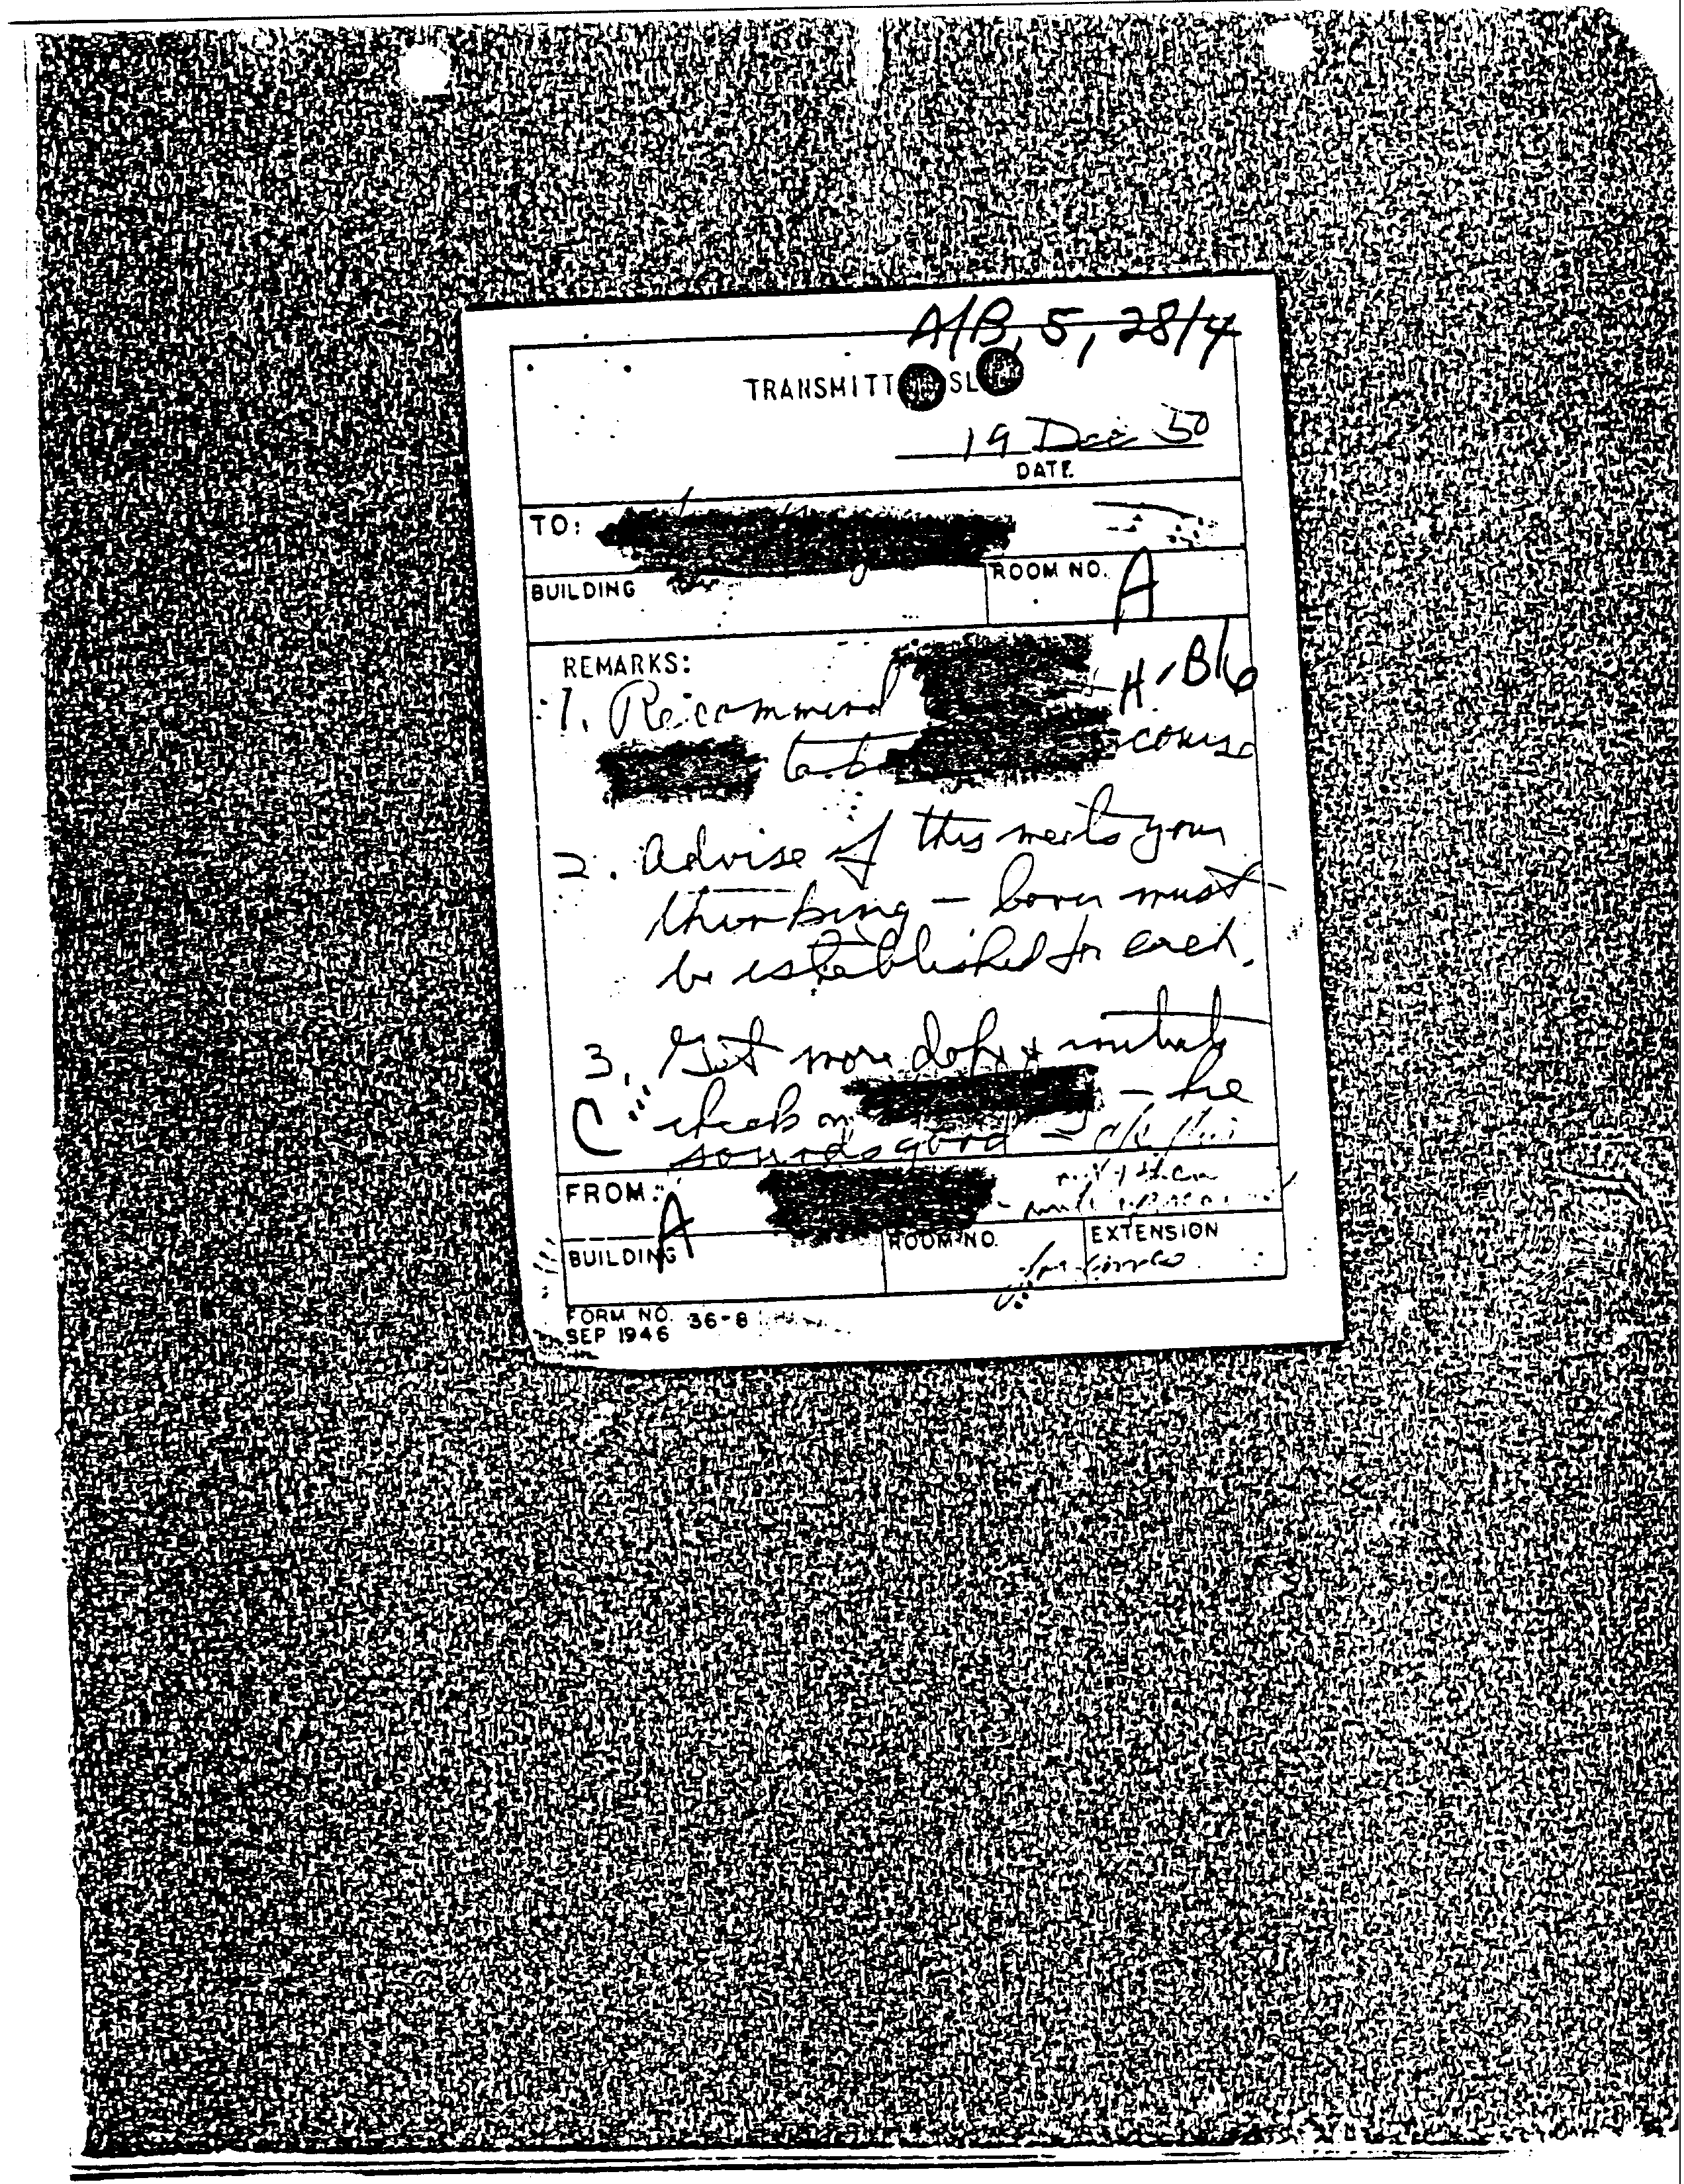 A/B, 5, 28/4
TRANSMITT SL
19 Dec 50
DATE
TO:
BUILDING
ROOM NO. A
REMARKS:
H-B/6
1. Recommend
to take course
2. Advise if this meets your
thinking — cover must
be established for each.
3. Get more dope & initiate
C check on — he
sounds good —
FROM:
A
BUILDING
ROOM NO.
EXTENSION
FORM NO. 36-8
SEP 1946